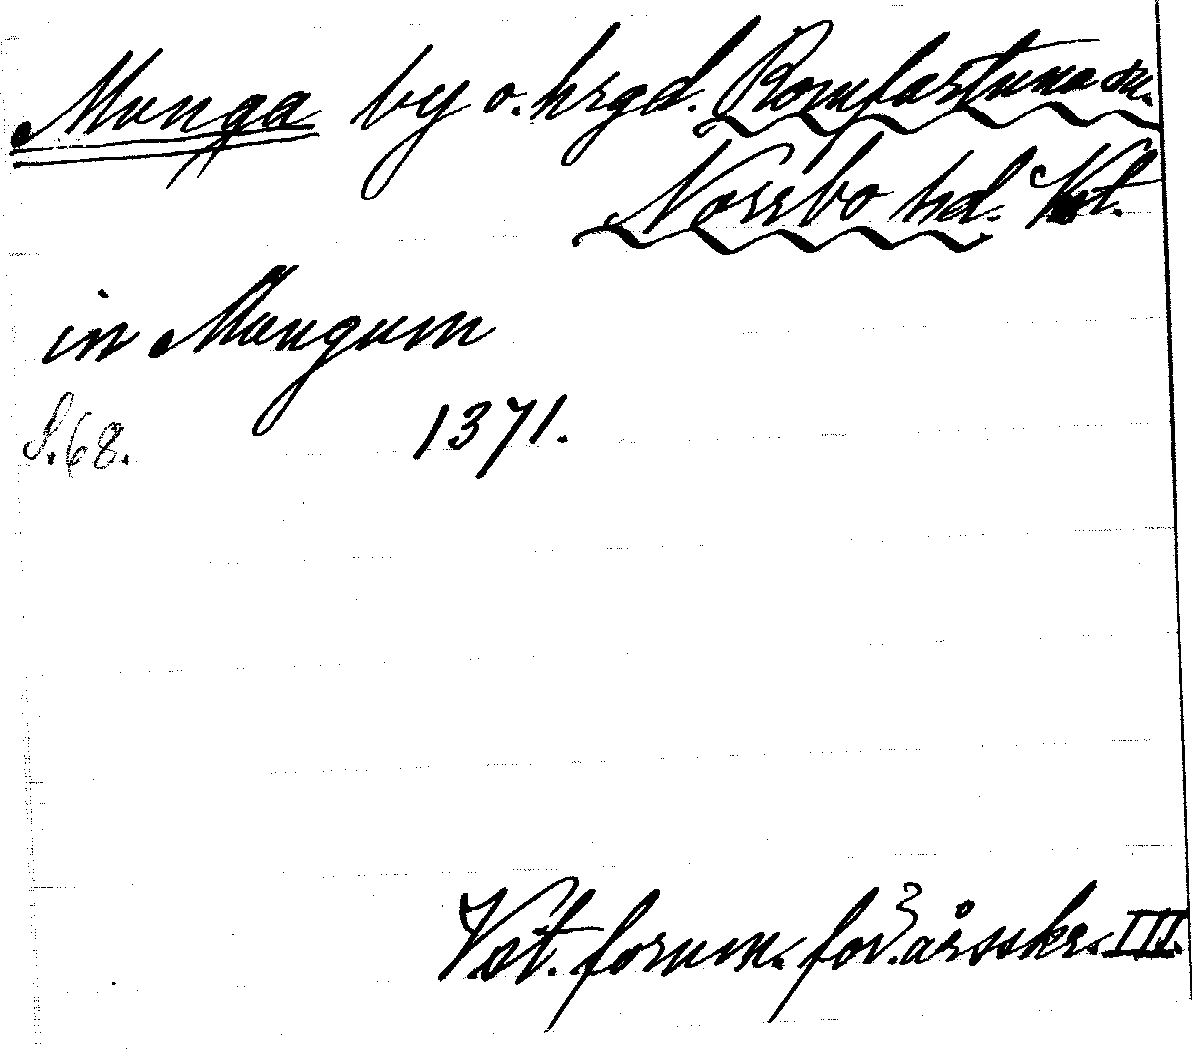 Munga by o. hrgd. Romfartuna sn.
Norrbo hd. Vst.
in Mungum
S. 68. 1371.
Vst. fornm. för. årsskr. III.